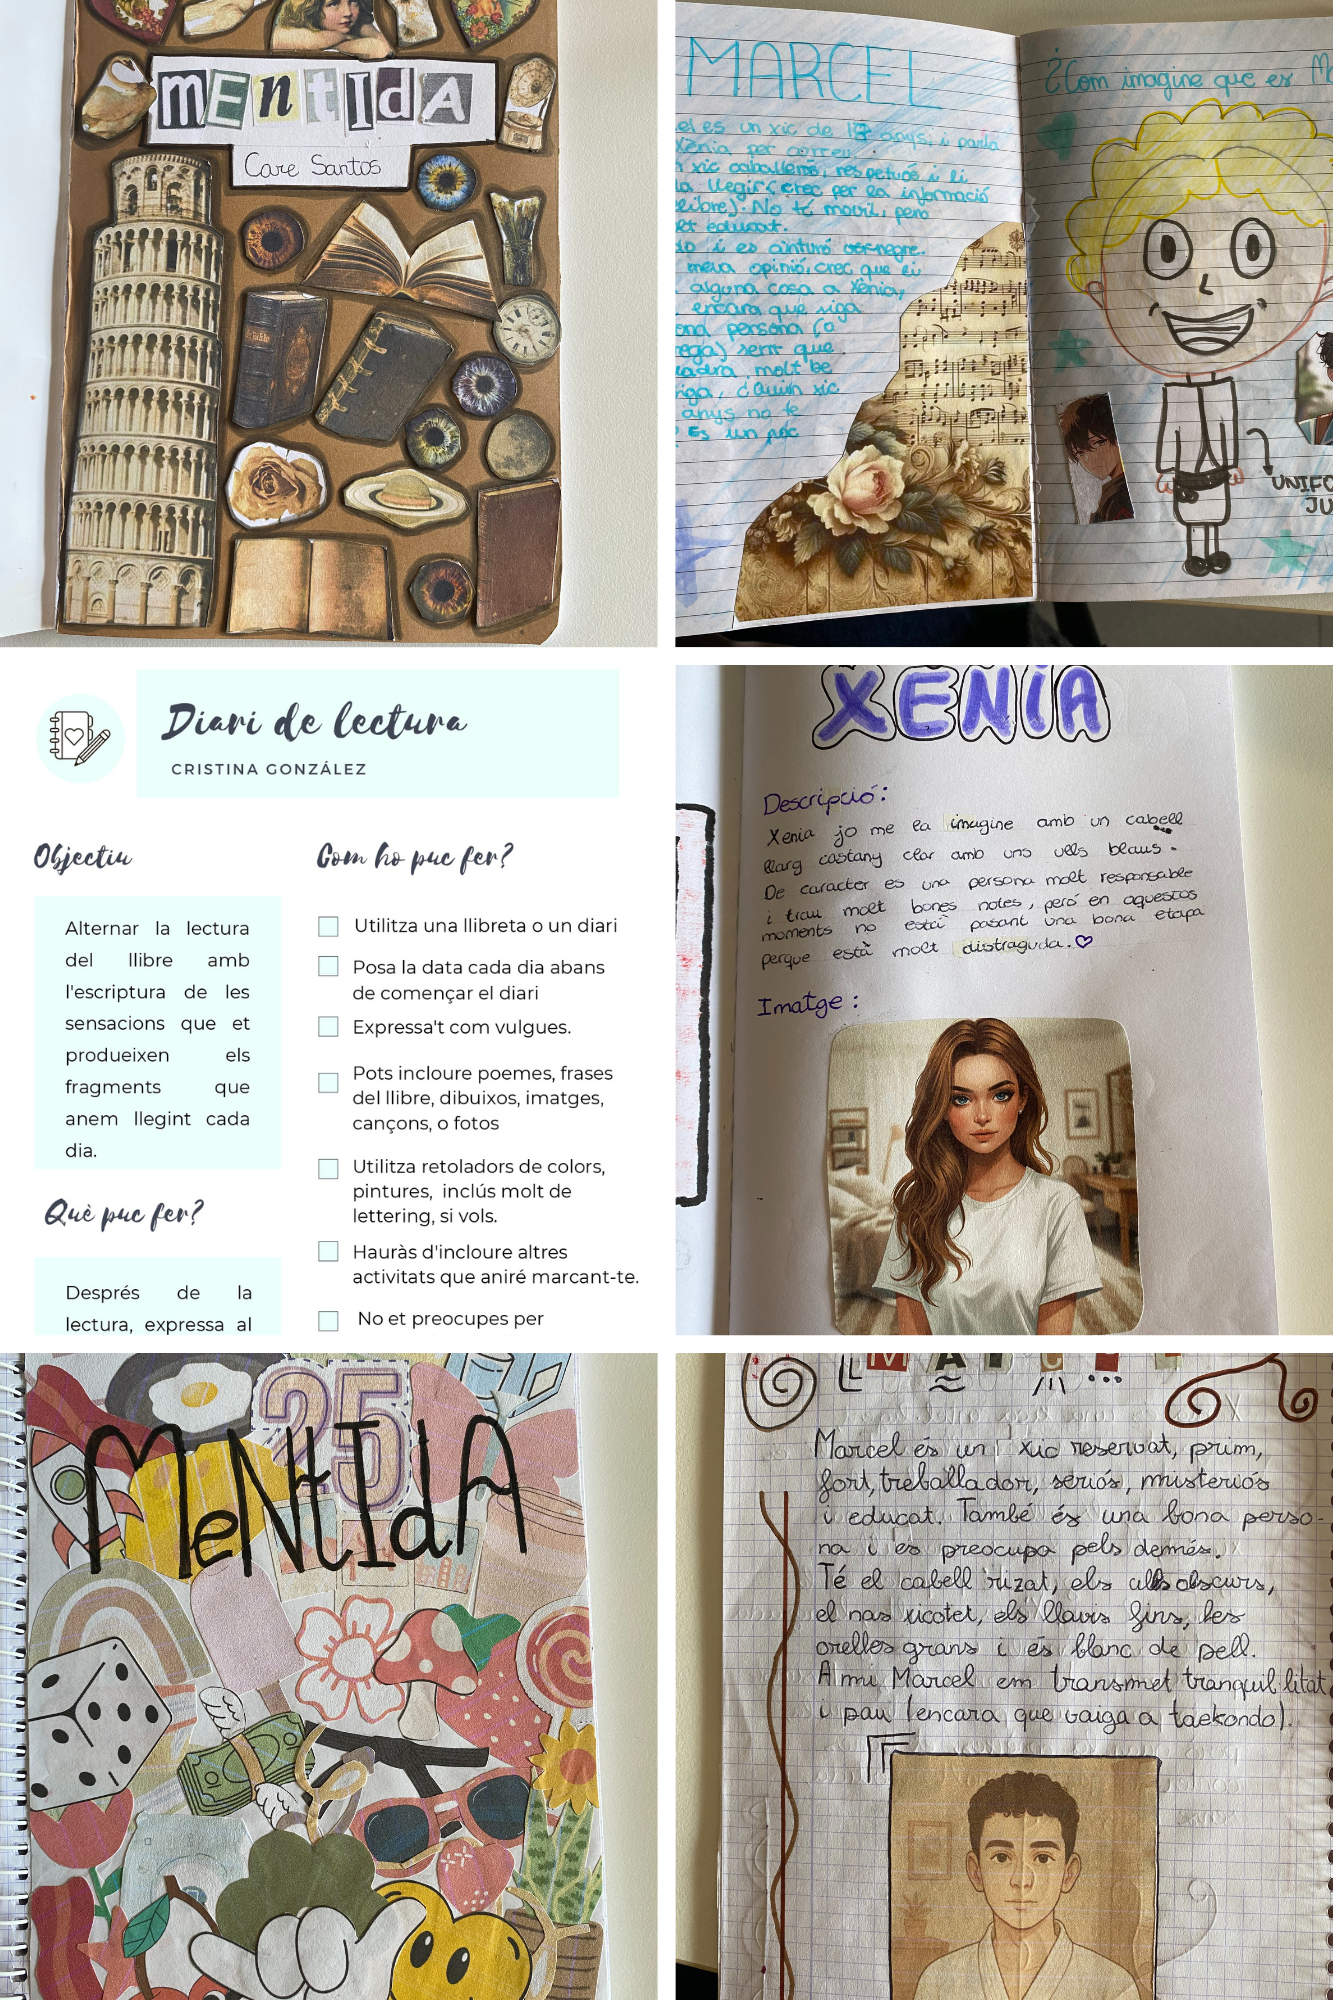 mEntIdA
Care Santos
MARCEL
el es un xic de 18 anys, i parla
Xènia per correu.
xic caballerós, respetuós i li
la llegir (crec per la informació
llibre). No té movil, pero
educat.
i es cinturó negre.
meua opinió, crec que li
alguna cosa a Xènia,
encara que siga
persona (o
) serir que
molt be
¿Quin xic
anys no te
Es un poc
¿Com imagine que es
UNIFO
JU
Diari de lectura
CRISTINA GONZÁLEZ
Objectiu
Alternar la lectura
del llibre amb
l'escriptura de les
sensacions que et
produeixen els
fragments que
anem llegint cada
dia.
Què puc fer?
Després de la
lectura, expressa al
Com ho puc fer?
Utilitza una llibreta o un diari
Posa la data cada dia abans
de començar el diari
Expressa't com vulgues.
Pots incloure poemes, frases
del llibre, dibuixos, imatges,
cançons, o fotos
Utilitza retoladors de colors,
pintures, inclús molt de
lettering, si vols.
Hauràs d'incloure altres
activitats que aniré marcant-te.
No et preocupes per
XENIA
Descripció:
Xenia jo me la imagine amb un cabell
llarg castany clar amb uns ulls blaus.
De caracter es una persona molt responsable
i trau molt bones notes, però en aquestos
moments no està pasant una bona etapa
perque està molt distraguda.
Imatge:
25
MeNtIdA
Marcel és un xic reservat, prim,
fort, treballador, seriós, misteriós
i educat. També és una bona perso-
na i es preocupa pels demés.
Té el cabell rizat, els ulls obscurs,
el nas xicotet, els llavis fins, les
orelles grans i és blanc de pell.
A mi Marcel em transmet tranquil·litat
i pau (encara que vaiga a taekondo).